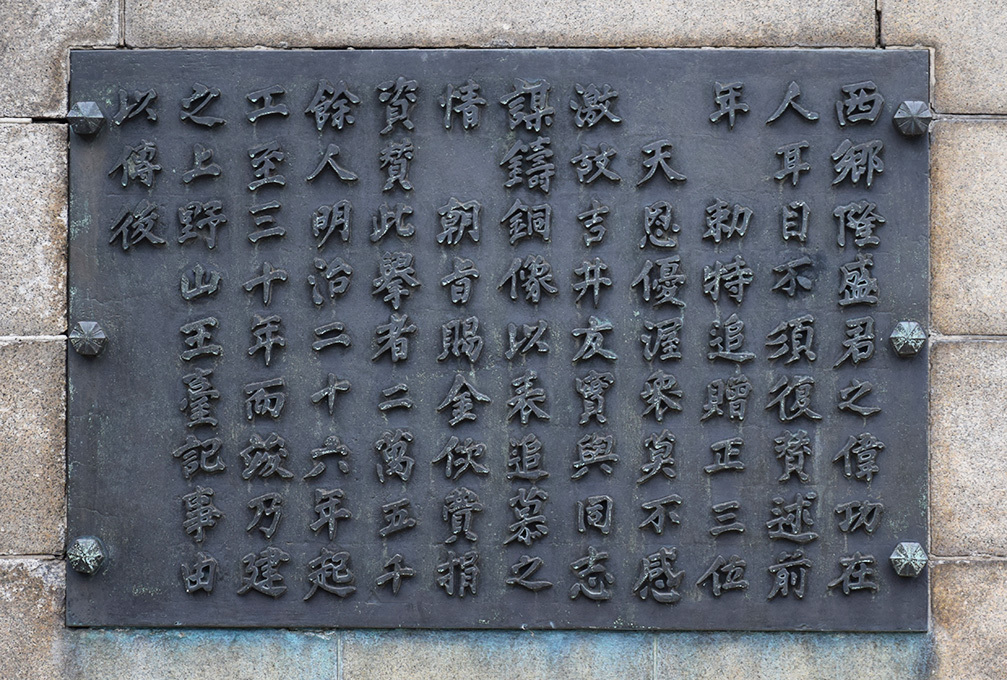 西郷隆盛君之偉功在
人耳目不須復賛述前
年　勅特追贈正三位
天恩優渥衆莫不感
激故吉井友實與同志
謀鑄銅像以表追慕之
情　朝旨賜金佽費捐
資賛此擧者二萬五千
餘人明治二十六年起
工至三十年而竣乃建
之上野山王臺記事由
以傳後